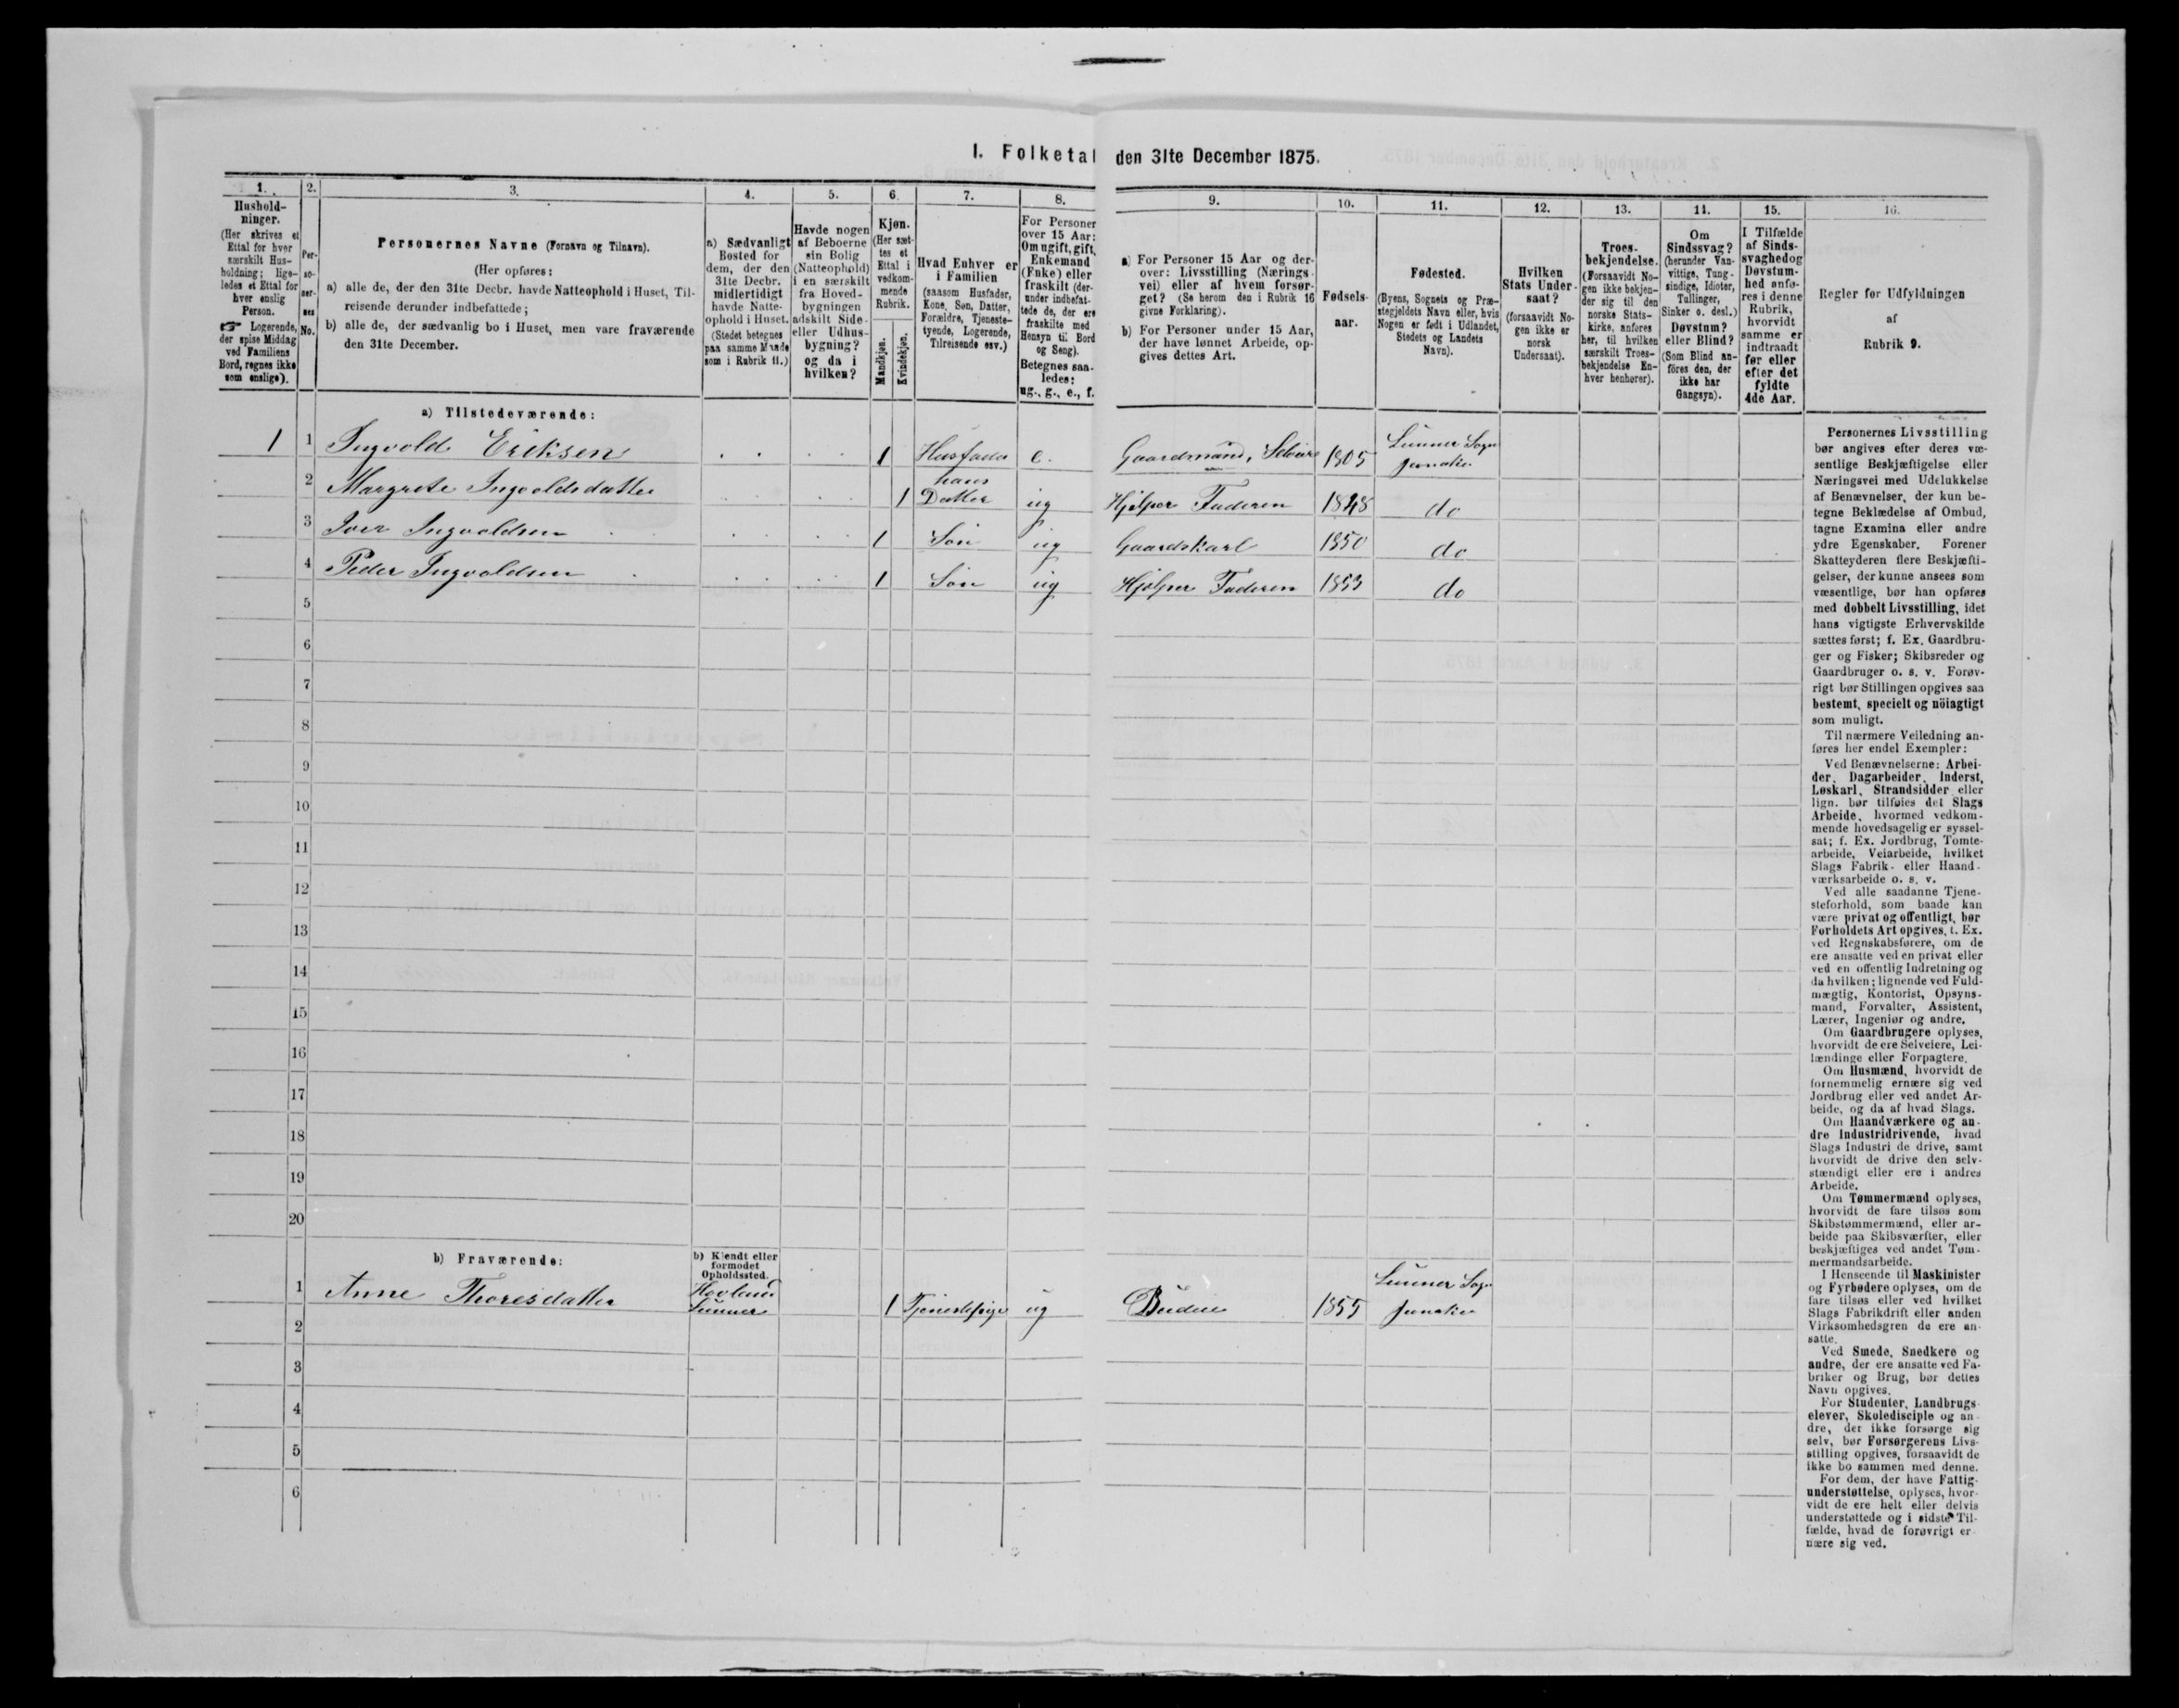 I. Folketal den 31te December 1875.
1.
Hushold-
ninger.
(Her skrives et
Ettal for hver
særskilt Hus-
holdning; lige-
ledes et Ettal for
hver enslig
Person.
☞ Logerende,
der spise Middag
ved Familiens
Bord, regnes ikke
som enslige).
2.
Per-
so-
ner-
nes
No.
3.
Personernes Navne (Fornavn og Tilnavn).
(Her opføres:
a) alle de, der den 31te Decbr. havde Natteophold i Huset, Til-
reisende derunder indbefattede;
b) alle de, der sædvanlig bo i Huset, men vare fraværende
den 31te December.
4.
a) Sædvanligt
Bosted for
dem, der den
31te Decbr.
midlertidigt
havde Natte-
ophold i Huset.
(Stedet betegnes
paa samme Maade
som i Rubrik 11.)
5.
Havde nogen
af Beboerne
sin Bolig
(Natteophold)
i en særskilt
fra Hoved-
bygningen
adskilt Side-
eller Udhus-
bygning?
og da i
hvilken?
6.
Kjøn.
(Her sæt-
tes et
Ettal i
vedkom-
mende
Rubrik.
Mandkjøn.
Kvindekjøn.
7.
Hvad Enhver er
i Familien
(saasom Husfader,
Kone, Søn, Datter,
Forældre, Tjeneste-
tyende, Logerende,
Tilreisende osv.)
8.
For Personer
over 15 Aar:
Om ugift, gift,
Enkemand
(Enke) eller
fraskilt (der-
under indbefat-
tede de, der ere
fraskilte med
Hensyn til Bord
og Seng).
Betegnes saa-
ledes:
ug., g., e., f.
9.
a) For Personer 15 Aar og der-
over: Livsstilling (Nærings-
vei) eller af hvem forsør-
get? (Se herom den i Rubrik 16
givne Forklaring).
b) For Personer under 15 Aar,
der have lønnet Arbeide, op-
gives dettes Art.
10.
Fødsels-
aar.
11.
Fødested.
(Byens, Sognets og Præ-
stegjeldets Navn eller, hvis
Nogen er født i Udlandet,
Stedets og Landets
Navn).
12.
Hvilken
Stats Under-
saat?
(forsaavidt No-
gen ikke er
norsk
Undersaat).
13.
Troes-
bekjendelse.
(Forsaavidt No-
gen ikke bekjen-
der sig til den
norske Stats-
kirke, anføres
her, til hvilken
særskilt Troes-
bekjendelse En-
hver henhører).
14.
Om
Sindssvag?
(herunder Van-
vittige, Tung-
sindige, Idioter,
Tullinger,
Sinker o. desl.)
Døvstum?
eller Blind?
(Som Blind an-
føres den, der
ikke har
Gangsyn).
15.
I Tilfælde
af Sinds-
svaghed og
Døvstum-
hed anfø-
res i denne
Rubrik,
hvorvidt
samme er
indtraadt
før eller
efter det
fyldte
4de Aar.
16.
Regler for Udfyldningen
af
Rubrik 9.
a) Tilstedeværende:
1 1 Ingvold Eriksen 1 Husfader e. Gaardmand, Selveier 1805 Lunner Sogn Jevnaker
2 Margrete Ingvoldsdatter 1 hans Datter ug Hjelper Faderen 1848 do
3 Iver Ingvoldsen 1 Søn ug Gaardskarl 1850 do
4 Peder Ingvoldsen 1 Søn ug Hjelper Faderen 1853 do
5
6
7
8
9
10
11
12
13
14
15
16
17
18
19
20
b) Fraværende:
b) Kjendt eller
formodet
Opholdssted.
1 Anne Thoresdatter Hovland Lunner 1 Tjenestepige ug Budeie 1855 Lunner Sogn Jevnaker
2
3
4
5
6
Personernes Livsstilling
bør angives efter deres væ-
sentlige Beskjæftigelse eller
Næringsvei med Udelukkelse
af Benævnelser, der kun be-
tegne Beklædelse af Ombud,
tagne Examina eller andre
ydre Egenskaber. Forener
Skatteyderen flere Beskjæfti-
gelser, der kunne ansees som
væsentlige, bør han opføres
med dobbelt Livsstilling, idet
hans vigtigste Erhvervskilde
sættes først; f. Ex. Gaardbru-
ger og Fisker; Skibsreder og
Gaardbruger o. s. v. Forøv-
rigt bør Stillingen opgives saa
bestemt, specielt og nöiagtigt
som muligt.
Til nærmere Veiledning an-
føres her endel Exempler:
Ved Benævnelserne: Arbei-
der, Dagarbeider, Inderst,
Løskarl, Strandsidder eller
lign. bør tilføies det Slags
Arbeide, hvormed vedkom-
mende hovedsagelig er syssel-
sat; f. Ex. Jordbrug, Tomte-
arbeide, Veiarbeide, hvilket
Slags Fabrik- eller Haand-
værksarbeide o. s. v.
Ved alle saadanne Tjene-
steforhold, som baade kan
være privat og offentligt, bør
Forholdets Art opgives, f. Ex.
ved Regnskabsførere, om de
ere ansatte ved en privat eller
ved en offentlig Indretning og
da hvilken; lignende ved Fuld-
mægtig, Kontorist, Opsyns-
mand, Forvalter, Assistent,
Lærer, Ingeniør og andre.
Om Gaardbrugere oplyses,
hvorvidt de ere Selveiere, Lei-
lændinge eller Forpagtere.
Om Husmænd, hvorvidt de
fornemmelig ernære sig ved
Jordbrug eller ved andet Ar-
beide, og da af hvad Slags.
Om Haandværkere og an-
dre Industridrivende, hvad
Slags Industri de drive, samt
hvorvidt de drive den selv-
stændigt eller ere i andres
Arbeide.
Om Tømmermænd oplyses,
hvorvidt de fare tilsøs som
Skibstømmermænd, eller ar-
beide paa Skibsværfter, eller
beskjæftiges ved andet Tøm-
mermandsarbeide.
I Henseende til Maskinister
og Fyrbødere oplyses, om de
fare tilsøs eller ved hvilket
Slags Fabrikdrift eller anden
Virksomhedsgren de ere an-
satte.
Ved Smede, Snedkere og
andre, der ere ansatte ved Fa-
briker og Brug, bør dettes
Navn opgives.
For Studenter, Landbrugs-
elever, Skoledisciple og an-
dre, der ikke forsørge sig
selv, bør Forsørgerens Livs-
stilling opgives, forsaavidt de
ikke bo sammen med denne.
For dem, der have Fattig-
understøttelse, oplyses, hvor-
vidt de ere helt eller delvis
understøttede og i sidste Til-
fælde, hvad de forøvrigt er-
nære sig ved.